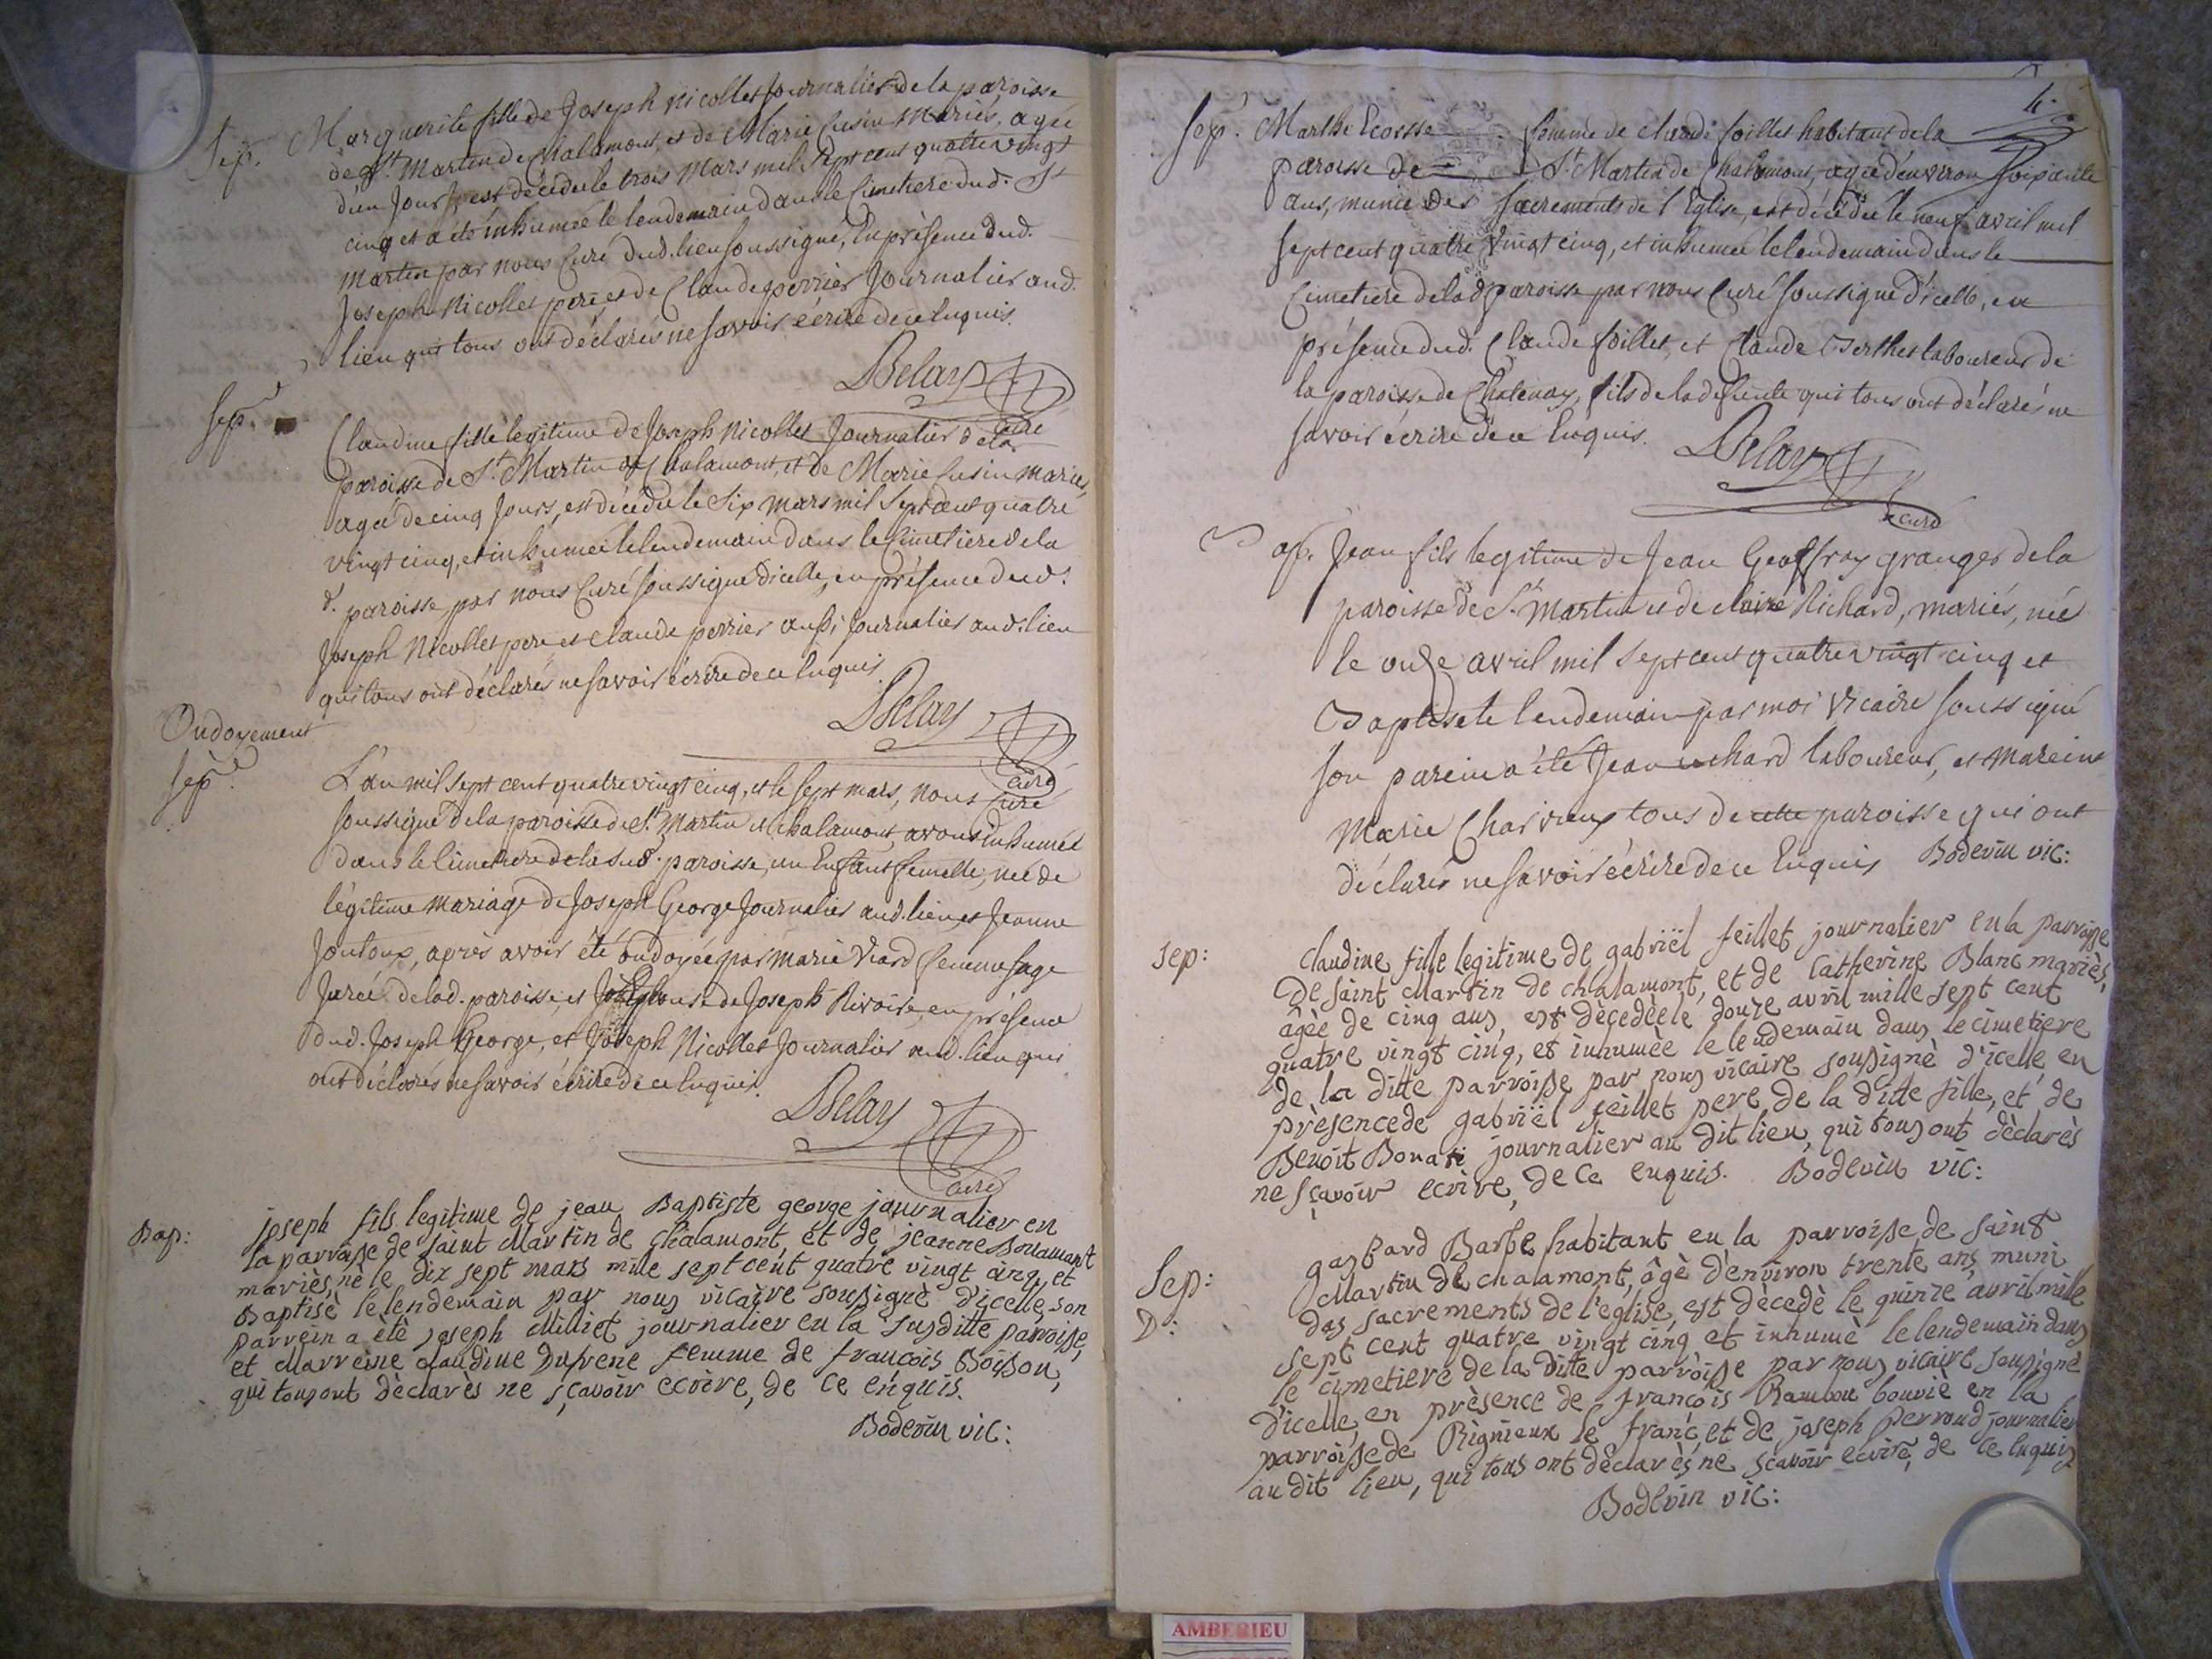 Sep.re Marguerite fille de Joseph Nicollet Journalier de la paroisse
de St. Martin de Chalamont, et de Marie Cusin Mariés, agée
d'un Jour, est décédée le trois Mars mil sept cent quatre vingt
cinq et a été inhumée le lendemain dans le Cimetiere dud. St
Martin par nous Curé dud. lieu soussigné, En présence dud.
Joseph Nicollet pere, et de Claude perrier Journalier aud.
lieu qui tous ont déclarés ne savoir écrire de ce Enquis.
Delay
Curé
Sep.re
Claudine fille légitime de Joseph Nicollet Journalier de la
paroisse de St. Martin de Chalamont, et de Marie Cusin Mariés,
agée de cinq Jours, est décédée le Six Mars mil Sept cent quatre
vingt cinq, et inhumée le lendemain dans le Cimetiere de la
d. paroisse par nous Curé soussigné d'icelle, en présence dud.
Joseph Nicollet pere et Claude perrier aussi Journalier aud. lieu
qui tous ont déclarés ne savoir écrire de ce Enquis.
Delay
Curé
Ondoyement
Sep.re
L'an mil sept cent quatre vingt cinq, et le sept mars, nous Curé
soussigné de la paroisse de St. Martin de Chalamont, avons inhumés
dans le Cimetiere de la sud. paroisse, un Enfant femelle, née de
légitime mariage de Joseph George Journalier aud. lieu, et Jeanne
Joutoux, après avoir été ondoyée par Marie Viard femme sage
Jurée de lad. paroisse, et Epouse de Joseph Rivoire, en présence
dud. Joseph George, et Joseph Nicollet Journalier aud. lieu qui
ont déclarés ne savoir écrire de ce Enquis.
Delay
Curé
Bap: joseph fils legitime de jean Baptiste george journalier en
la parroisse de saint Martin de chalamont, et de jeanne
mariès, nè le dix sept mars mille sept cent quatre vingt cinq, et
Baptisè le lendemain par nous vicaire soussignè d'icelle, son
parrein a ètè joseph Milliet journalier en la susditte parroisse,
et Marreine claudine Dufrene femme de françois Boisson,
qui tous ont dèclarès ne sçavoir ecrire, de ce enquis.
Bodevin vic:
4.
Sep.re Marthe Ecosse femme de claude foillet habitant de la
paroisse de St. Martin de Chalamont, agée d'environ soixante
ans, munie des sacrements de l'Eglise, est décédée le neuf avril mil
sept cent quatre vingt cinq, et inhumée le lendemain dans le
Cimetiere de lad. paroisse par nous Curé soussigné d'icelle, en
présence dud. Claude foillet, et Claude Berthet laboureur de
la paroisse de Chatenay, fils de la defunte qui tous ont déclarés ne
savoir écrire de ce Enquis.
Delay
Curé
Bap. Jean fils legitime de Jean Geoffray granger de la
paroisse de St Martin et de claire Richard, mariés, né
le onze avril mil sept cent quatre vingt cinq et
Baptisé le lendemain par moi Vicaire soussigné
son parein a été Jean uchard laboureur, et mareine
Marie Charvieux tous de cette paroisse qui ont
déclarés ne savoir écrire de ce Enquis Bodevin vic:
Sep: Claudine fille legitime de gabriël feillet journalier en la parroisse
De saint Martin de chalamont, et de catherine Blanc mariès,
âgèe de cinq ans, est dècedèe le douze avril mille sept cent
quatre vingt cinq, et inhumèe le lendemain dans le cimetiere
de la ditte parroisse par nous vicaire soussignè d'icelle, en
prèsence de gabriël feillet pere de la ditte fille, et de
Benoit Bonati journalier au dit lieu, qui tous ont dèclarès
ne sçavoir ecrire, de ce enquis. Bodevin vic:
Sep: gaspard Barbe habitant en la parroisse de saint
D: Martin de chalamont, âgè d'environ trente ans, muni
des sacrements de l'eglise, est dècedè le quinze avril mille
sept cent quatre vingt cinq et inhumè le lendemain dans
le cimetiere de la ditte parroisse par nous vicaire soussignè
d'icelle, en prèsence de françois Rambou bouviè en la
parroisse de Rignieux le franc, et de joseph Perroud journalier
au dit lieu, qui tous ont dèclarès ne sçavoir ecrire, de ce enquis
Bodevin vic:
AMBERIEU